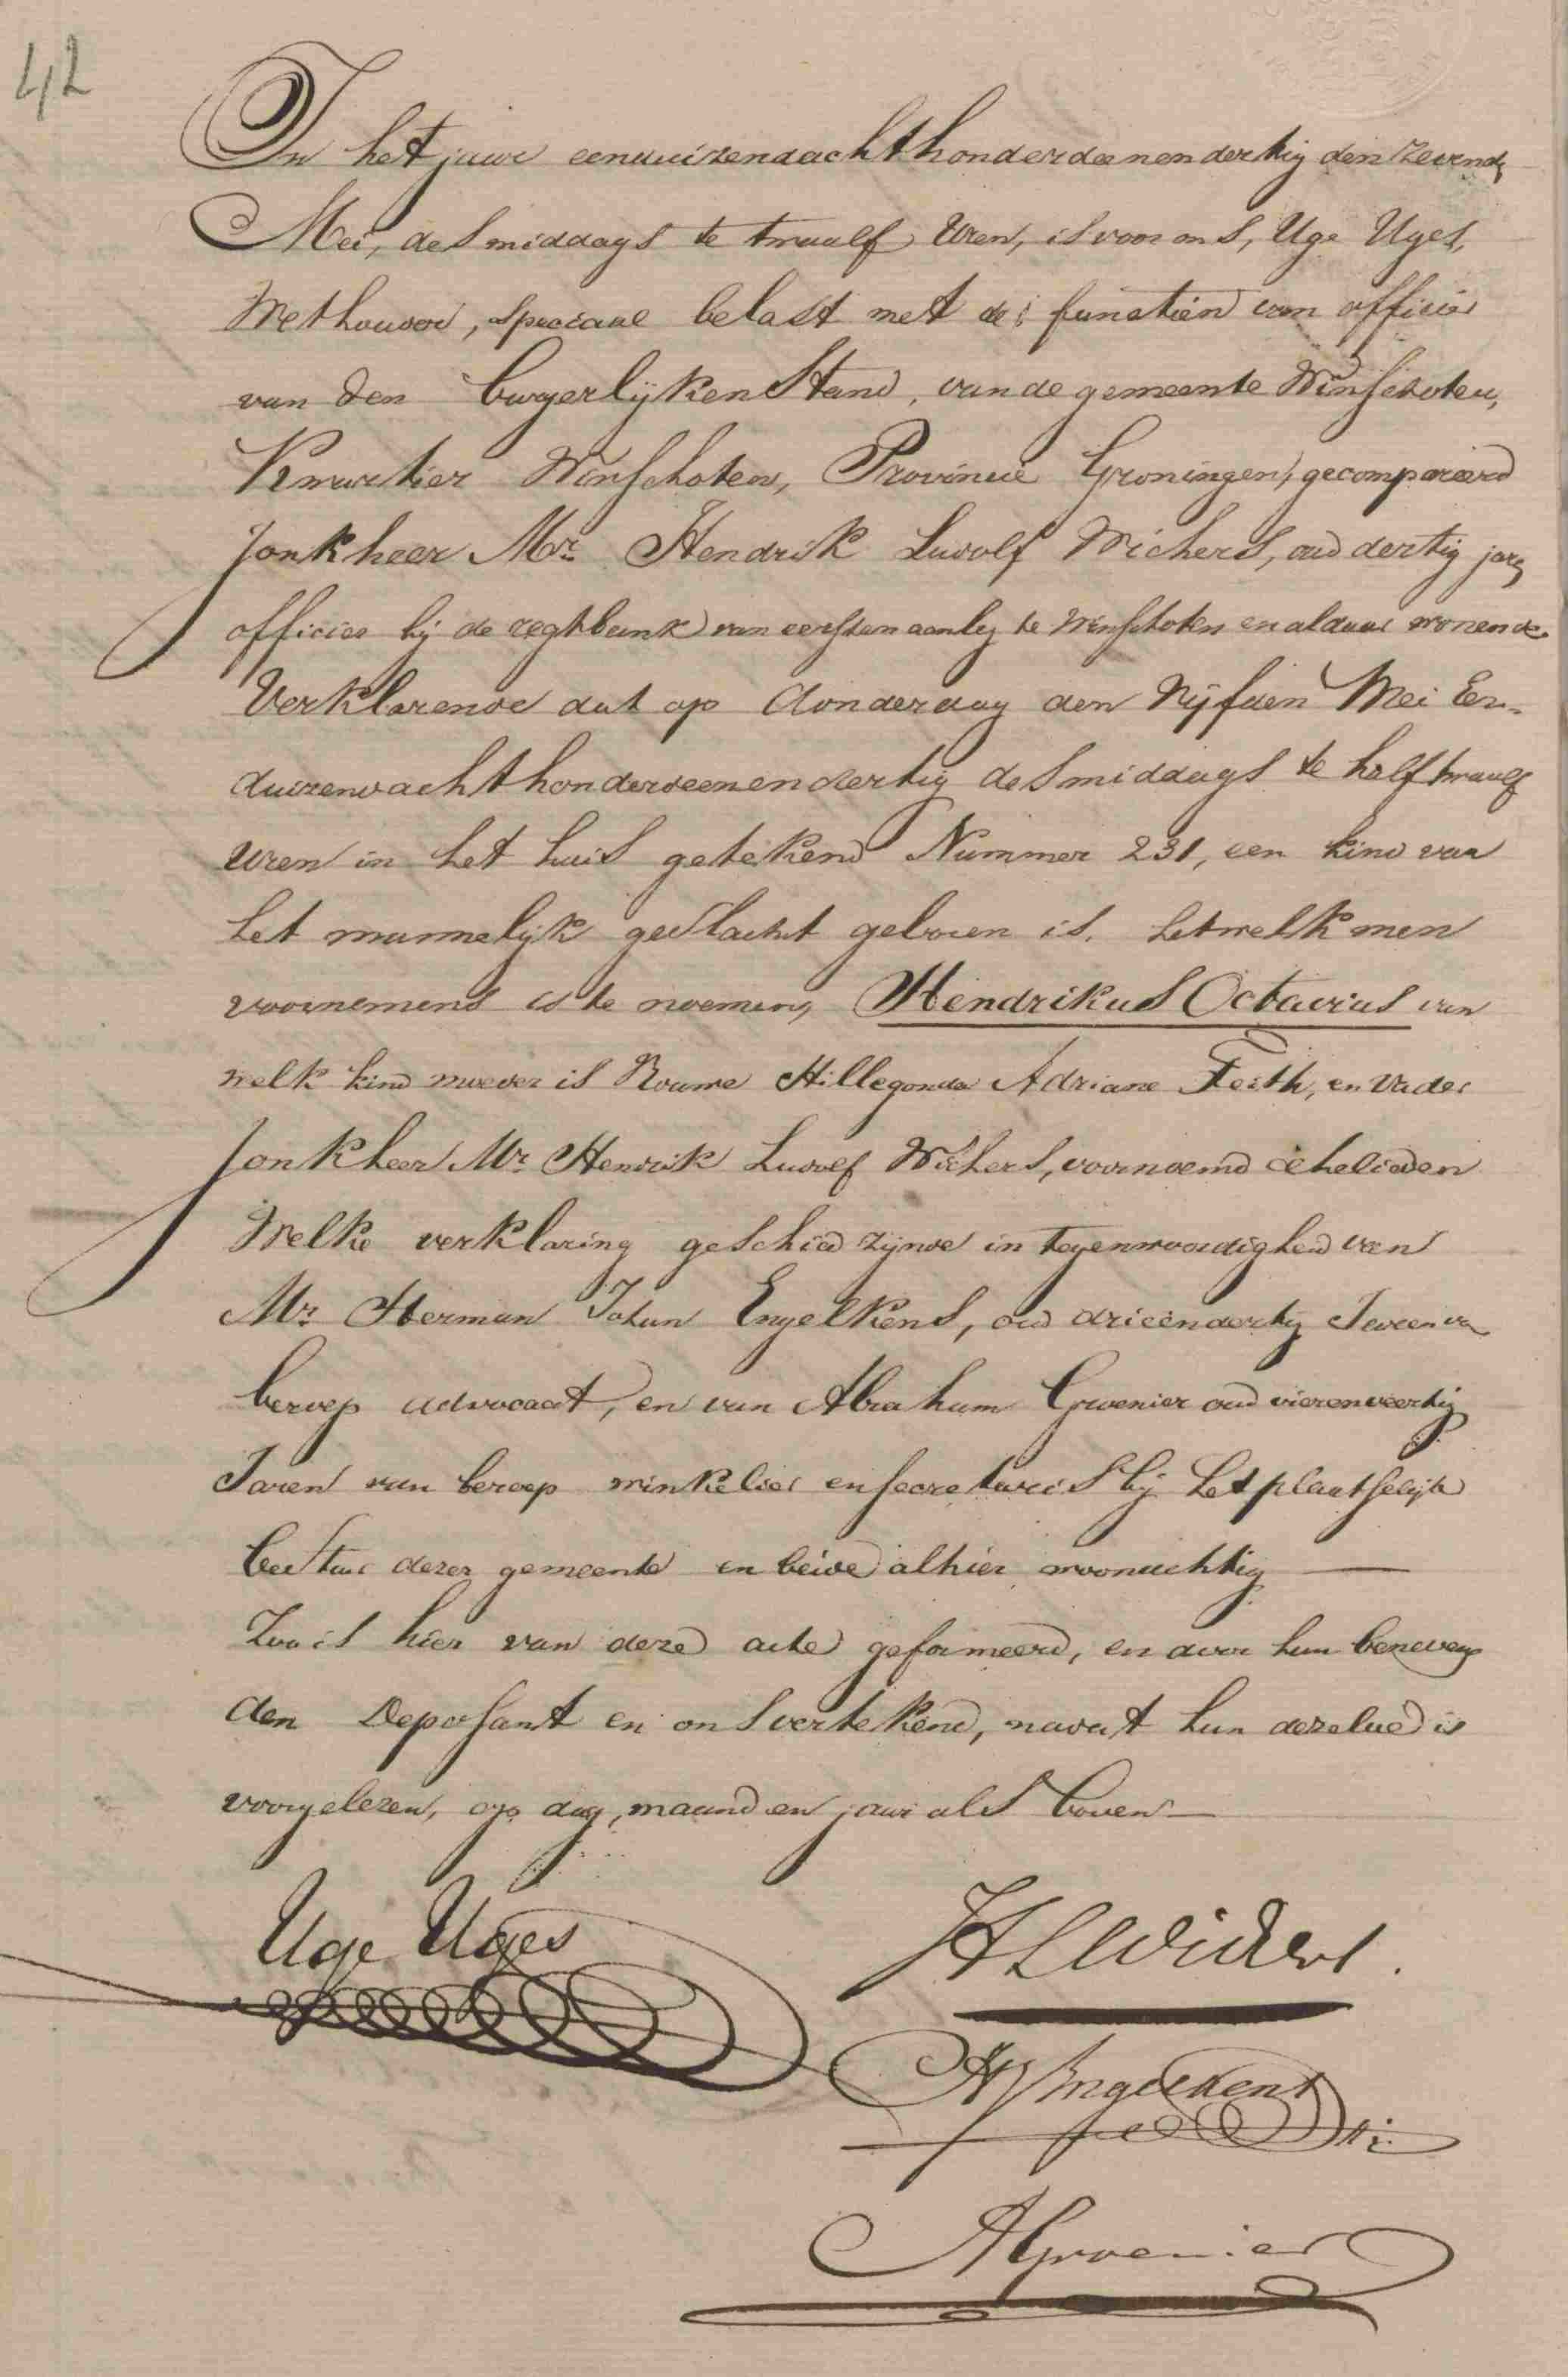 42
In het jaar eenduizendachthonderdeenendertig den zevende
Mei, des middags te twaalf Uren, is voor ons, Uge Uges,
Wethouder, speciaal belast met de functien van officier
van den burgerlijken Stand, van de gemeente Winschoten,
Kwartier Winschoten, Provincie Groningen, gecompareerd
Jonkheer Mr. Hendrik Ludolf Wichers, oud dertig jare
officier bij de regtbank van eersten aanleg te Winschoten en aldaar wonende
Verklarende dat op donderdag den Vijfden Mei Een-
duizendachthonderdeenendertig des middags te half twaalf
uren in het huis getekend Nummer 231, een kind van
het mannelijk geslacht geboren is, hetwelk men
voornemens is te noemen, Hendrikus Octavius van
welk kind moeder is Vrouwe Hillegonda Adriane Feith, en Vader
Jonkheer Mr. Hendrik Ludolf Wichers, voornoemd ehelieden
Welke verklaring geschied zijnde in tegenwoordigheid van
Mr. Herman Johan Engelkens, oud drieëndertig Jaren van
beroep advocaat, en van Abraham Groenier oud vierenveertig
Jaren van beroep winkelier en secretaris bij het plaatselijk
bestuur dezer gemeente en beide alhier woonachtig —
Zoo is hier van deze acte geformeerd, en door hun benevens
den Deposant en ons vertekend, nadat hun dezelve is
voorgelezen, op dag, maand en jaar als boven —
Uge Uges
HLWichers.
HJEngelkens
AGroenier